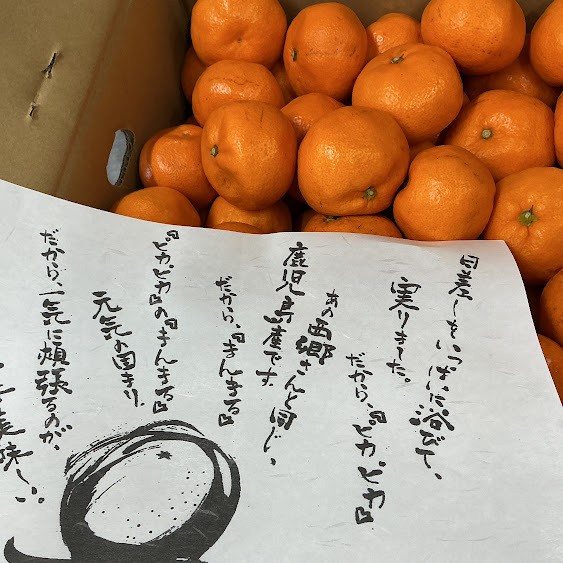 日差しをいっぱいに浴びて、
実りました。
だから、『ピカピカ』
あの西郷さんと同じ、
鹿児島産です。
だから、『まんまる』
『ピカピカ』の『まんまる』
元気の固まり。
だから、一気に頬張るのが、
美味しい。